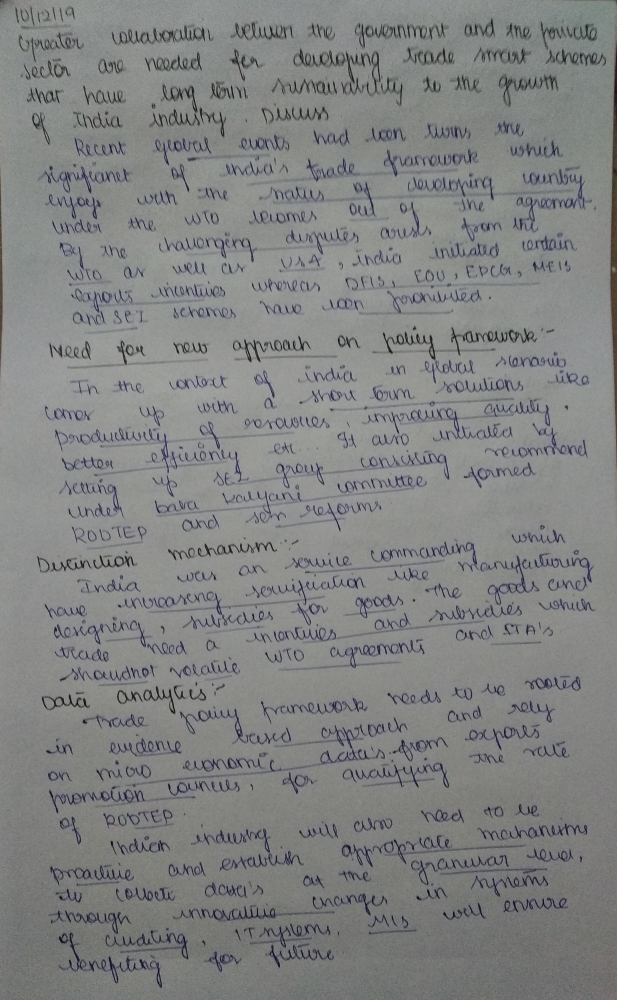 10/12/19
Greater collaboration between the government and the private
sector are needed for developing trade smart schemes
that have long term sustainability to the growth
of India industry. Discuss
Recent global events had been turns the
significant of India's trade framework which
enjoys with the status of developing country
under the WTO becomes out of the agreement.
By the challenging disputes arises from the
WTO as well as USA, India initiated certain
exports incentives whereas DFIS, EOU, EPCG, MEIS
and SEZ schemes have been prohibited.
Need for new approach on policy framework:-
In the context of India in global scenario
comes up with a short term solutions like
productivity of resources, improving quality,
better efficiency etc... It also initiated by
setting up SEZ group consisting recommend
under baba kalyani committee formed
RODTEP and sez reforms.
Distinction mechanism:-
India was an service commanding which
have increasing servification like manufacturing
designing, subsidies for goods. The goods and
trade need a incentives and subsidies which
shouldnot volatile WTO agreements and FTA's
Data analytics:-
Trade policy framework needs to be rooted
in evidence based approach and rely
on micro economic data's from exports
promotion councils, for quatifying the rate
of RODTEP.
Indian industry will also need to be
proactive and establish appropriate mechanisms
to collect data's at the granular level,
through innovative changes in systems
of auditing, IT systems, MIS will ensure
benefiting for future